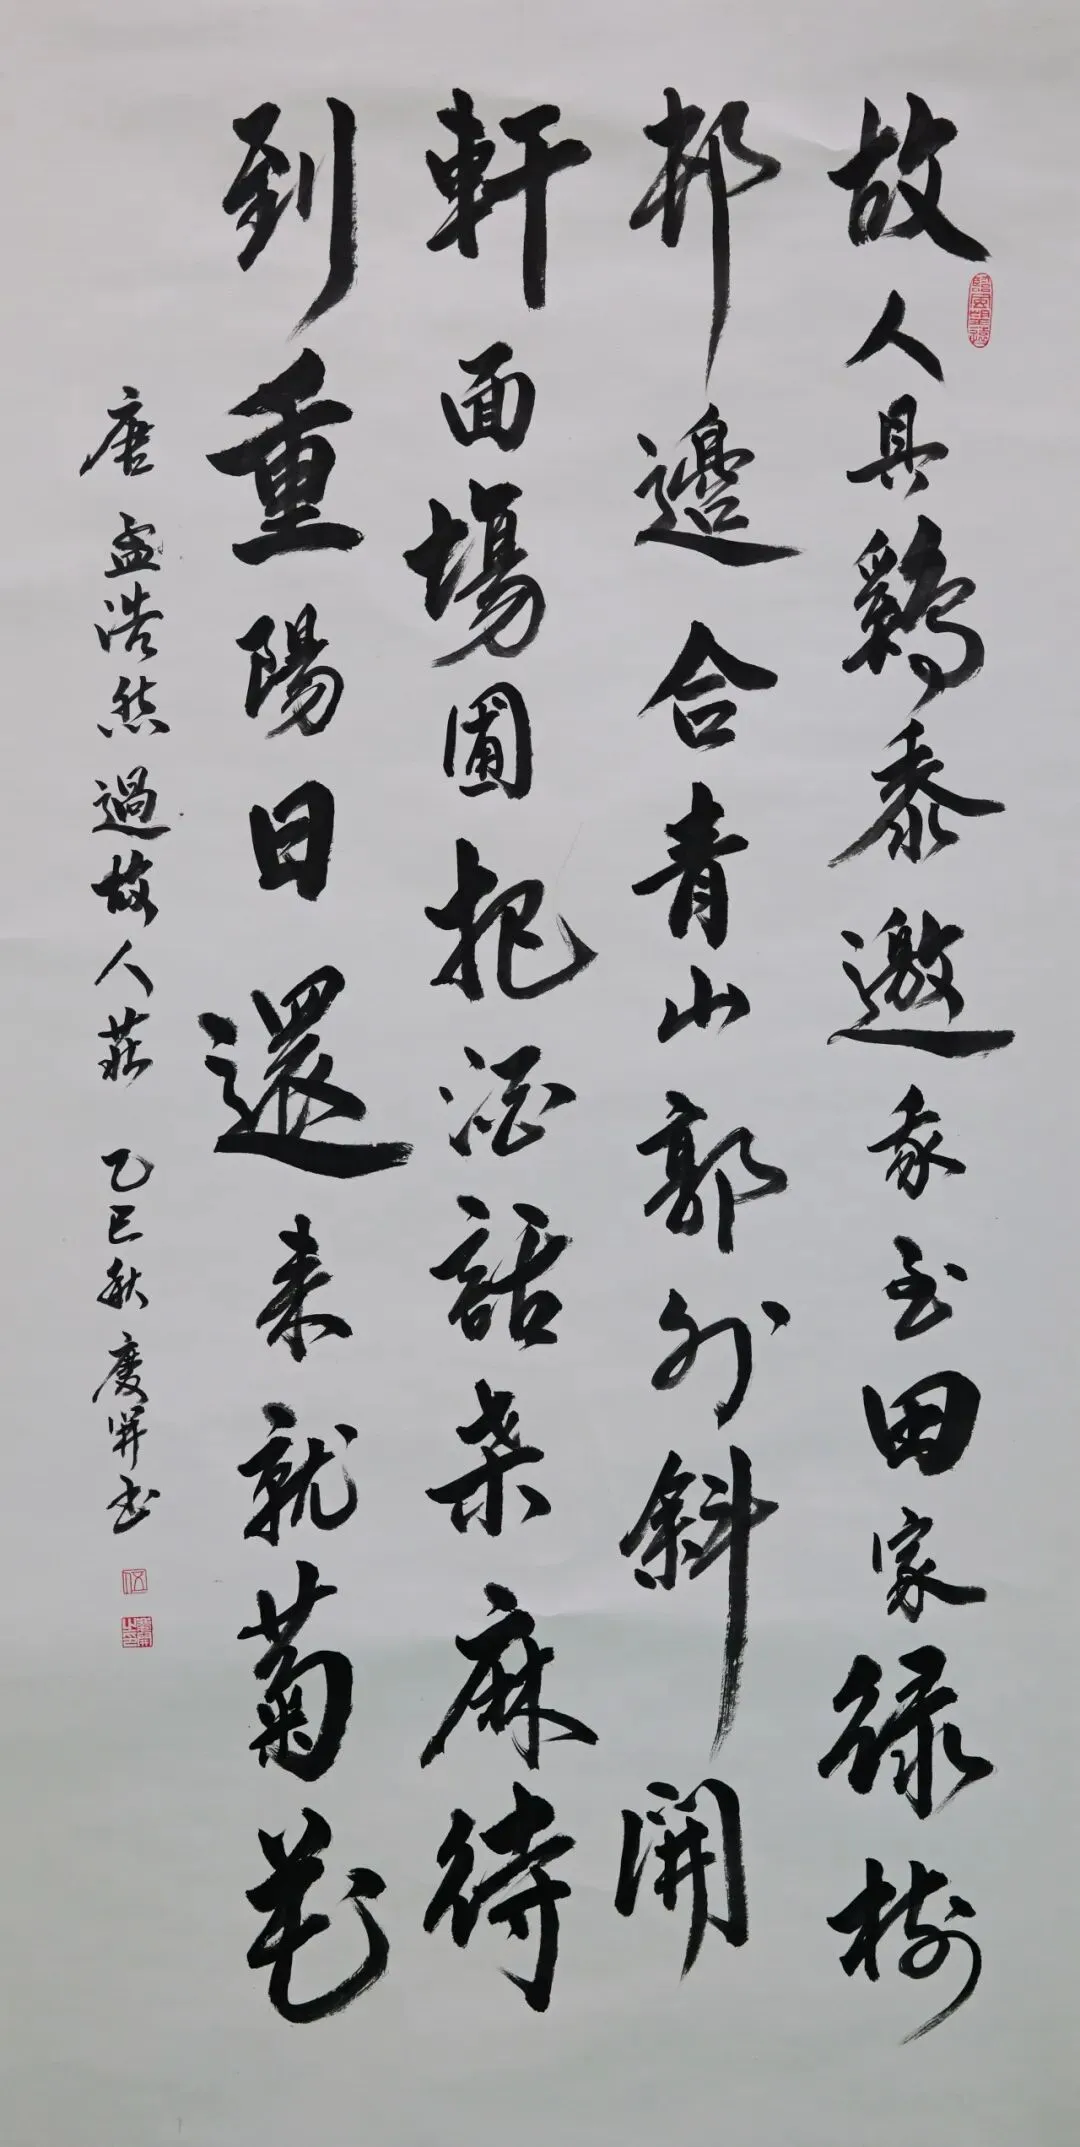 故人具鷄黍邀我至田家緑樹
邨邊合青山郭外斜開
軒面場圃把酒話桒麻待
到重陽日還来就菊花
唐孟浩然過故人莊 乙巳秋慶開书